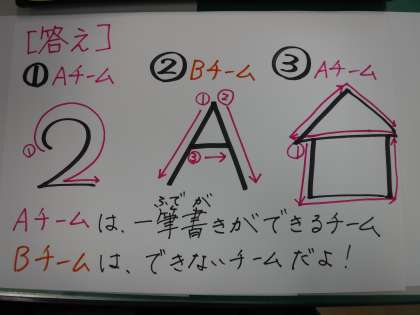 [答え]
① Aチーム ② Bチーム ③ Aチーム
① ① ② ③ ①
2 A
ふで が
Aチームは、一筆書きができるチーム
Bチームは、できないチームだよ!